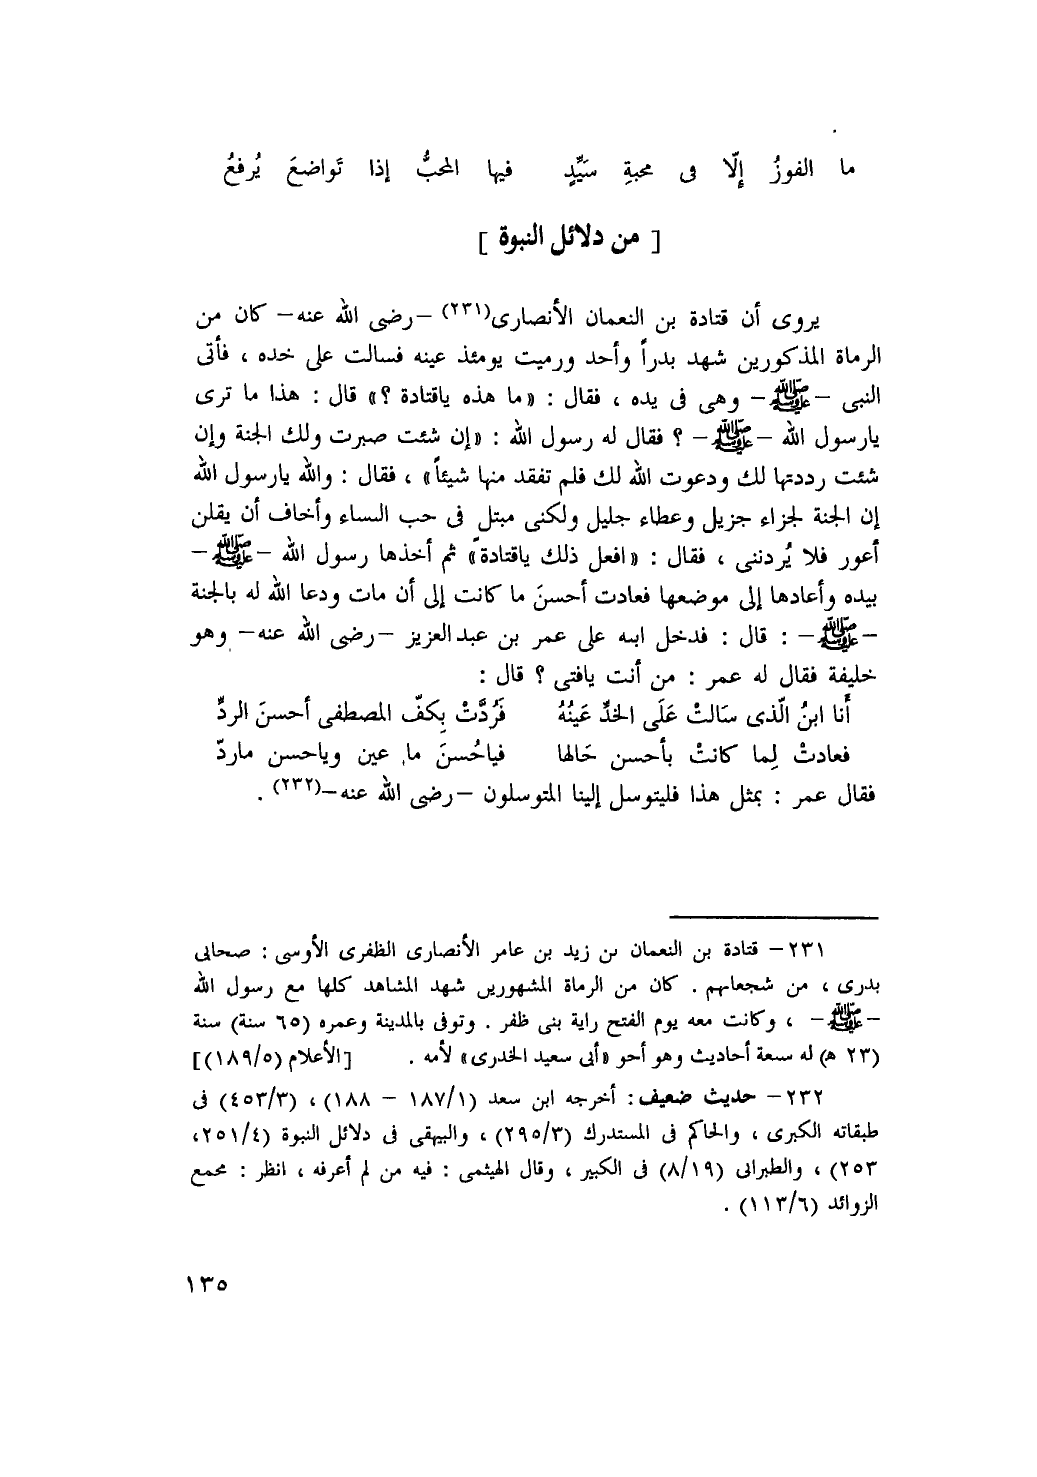 ما الفوزُ إلّا فى محبةِ سَيِّدٍ فيها المحبُّ إذا تَواضعَ يُرفعُ
[ من دلائل النبوة ]
يروى أن قتادة بن النعمان الأنصارى(٢٣١) –رضى الله عنه– كان من
الرماة المذكورين شهد بدراً وأحد ورميت يومئذ عينه فسالت على خده ، فأتى
النبى –ﷺ– وهى فى يده ، فقال : «ما هذه ياقتادة ؟» قال : هذا ما ترى
يارسول الله –ﷺ– ؟ فقال له رسول الله : «إن شئت صبرت ولك الجنة وإن
شئت رددتها لك ودعوت الله لك فلم تفقد منها شيئاً» ، فقال : والله يارسول الله
إن الجنة لجزاء جزيل وعطاء جليل ولكنى مبتل فى حب النساء وأخاف أن يقلن
أعور فلا يُردننى ، فقال : «افعل ذلك ياقتادة» ثم أخذها رسول الله –ﷺ–
بيده وأعادها إلى موضعها فعادت أحسنَ ما كانت إلى أن مات ودعا الله له بالجنة
–ﷺ– : قال : فدخل ابنه على عمر بن عبد العزيز –رضى الله عنه– وهو
خليفة فقال له عمر : من أنت يافتى ؟ قال :
أَنا ابنُ الّذى سَالتْ عَلَى الخدِّ عَينُهُ فَرُدَّتْ بِكفّ المصطفى أحسنَ الردِّ
فعادتْ لِما كانتْ بأحسن حَالها فياحُسنَ ما عين وياحسن ماردّ
فقال عمر : بمثل هذا فليتوسل إلينا المتوسلون –رضى الله عنه–(٢٣٢) .
٢٣١– قتادة بن النعمان بن زيد بن عامر الأنصارى الظفرى الأوسى : صحابى
بدرى ، من شجعانهم . كان من الرماة المشهورين شهد المشاهد كلها مع رسول الله
–ﷺ– ، وكانت معه يوم الفتح راية بنى ظفر . وتوفى بالمدينة وعمره (٦٥ سنة) سنة
(٢٣ هـ) له سبعة أحاديث وهو أخو «أبى سعيد الخدرى» لأمه . [الأعلام (١٨٩/٥)]
٢٣٢– حديث ضعيف : أخرجه ابن سعد (١٨٧/١ – ١٨٨) ، (٤٥٣/٣) فى
طبقاته الكبرى ، والحاكم فى المستدرك (٢٩٥/٣) ، والبيهقى فى دلائل النبوة (٢٥١/٤،
٢٥٣) ، والطبرانى (٨/١٩) فى الكبير ، وقال الهيثمى : فيه من لم أعرفه ، انظر : مجمع
الزوائد (١١٣/٦) .
١٣٥